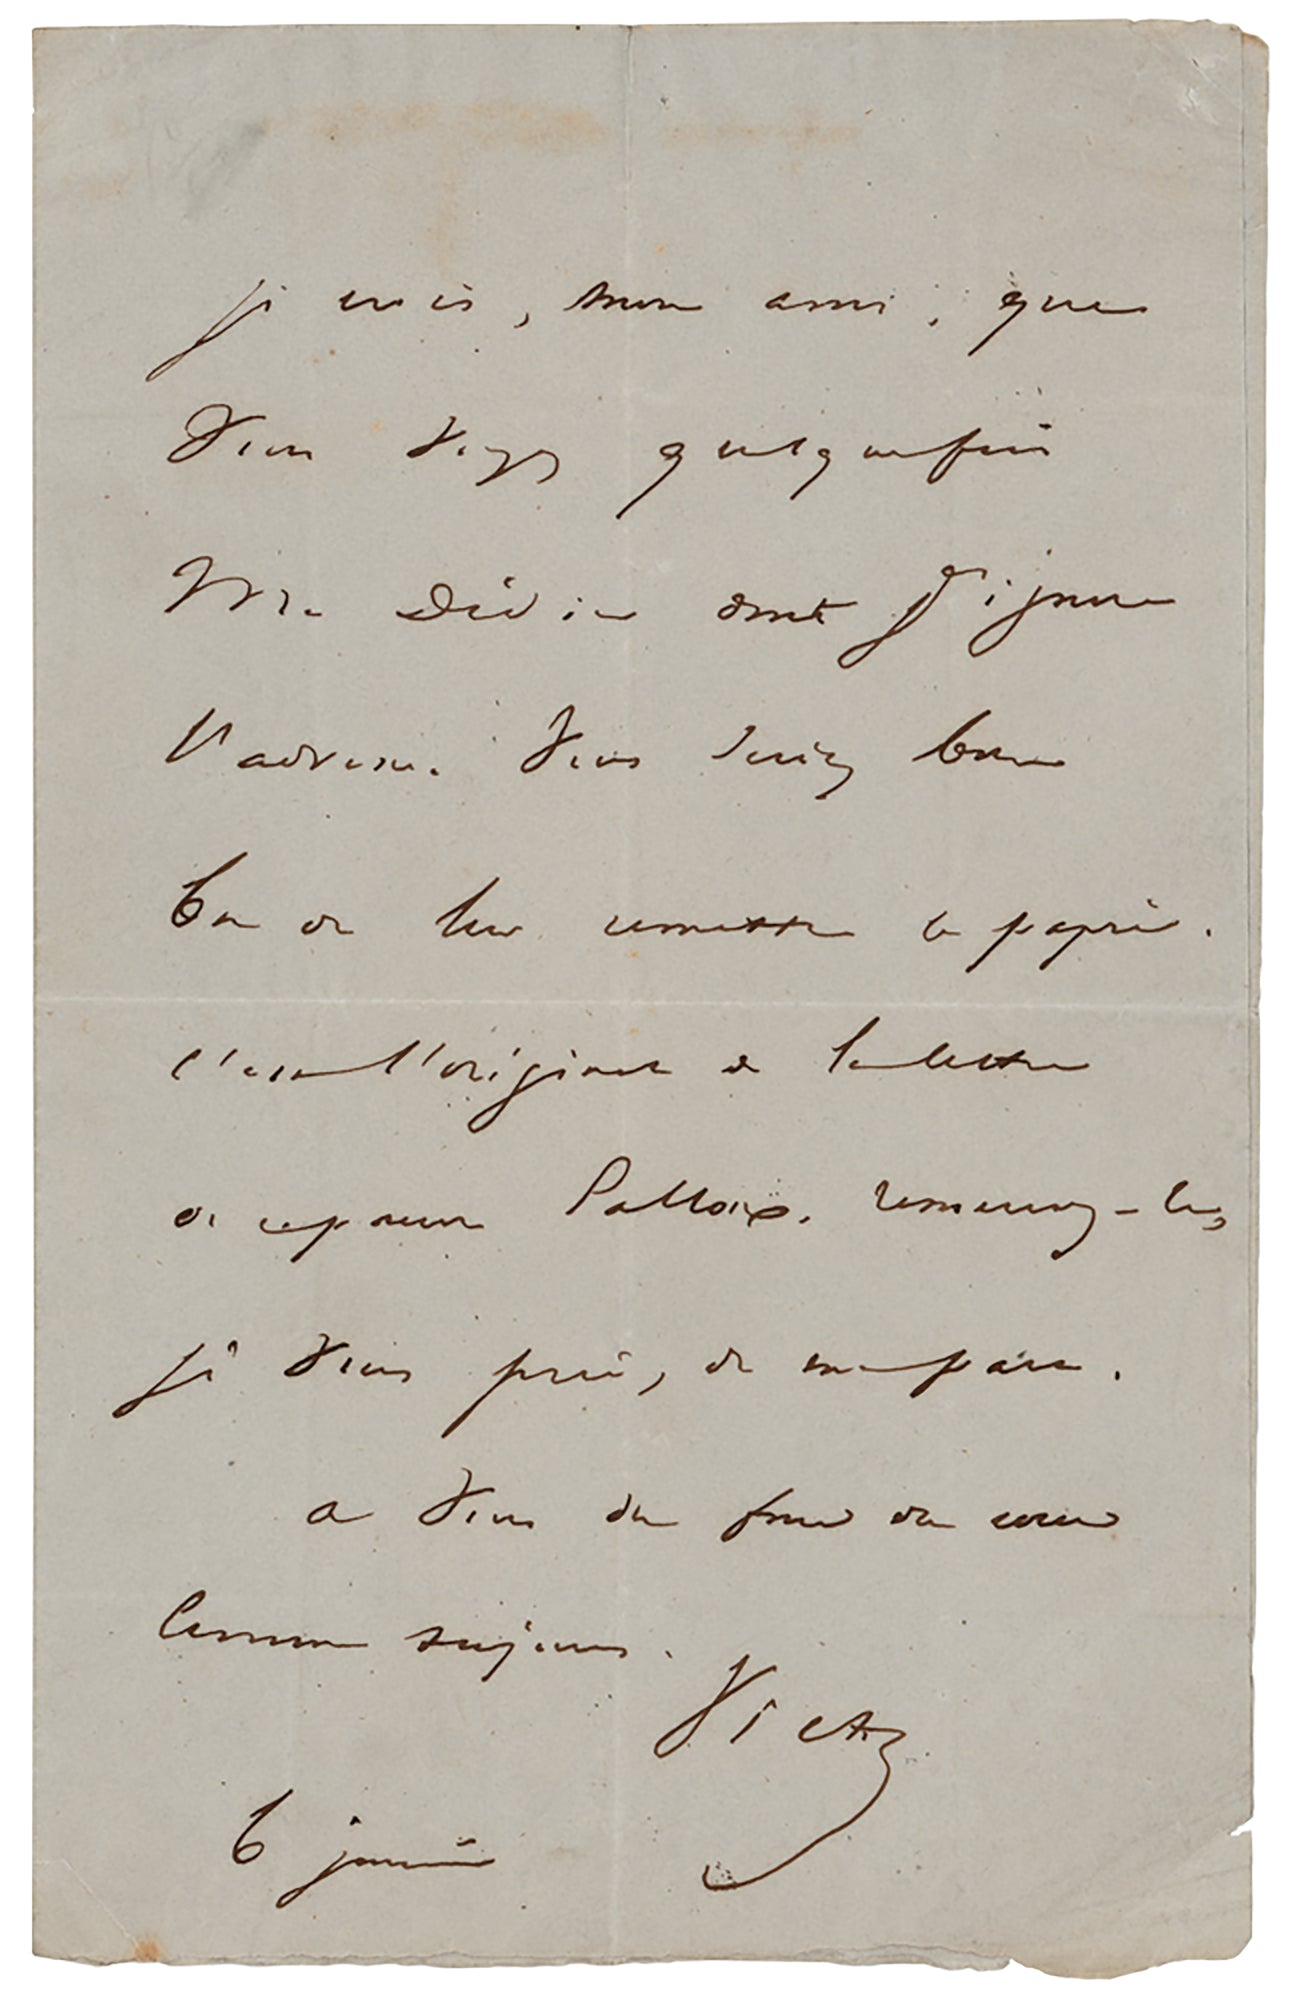 je crois, mon ami, que
vous voyez quelquefois
Mr Didier dont j'ignore
l'adresse. Vous seriez bien
bon de leur remettre ce papier.
c'est l'original de la lettre
de ce pauvre Palloix. remerciez-les,
je vous prie, de ma part.
a vous du fond du cœur
comme toujours.
Victor
6 janvier